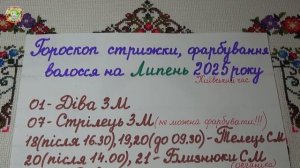 Гороскоп стрижки, фарбування
волосся на Липень 2025 року
Київський час
01- Діва ЗМ
07- Стрілець ЗМ (не можна фарбувати!!!)
18(після 16.30), 19,20(до 09.30)-Телець СМ
20(після 14.00), 21- Близнюки СМ